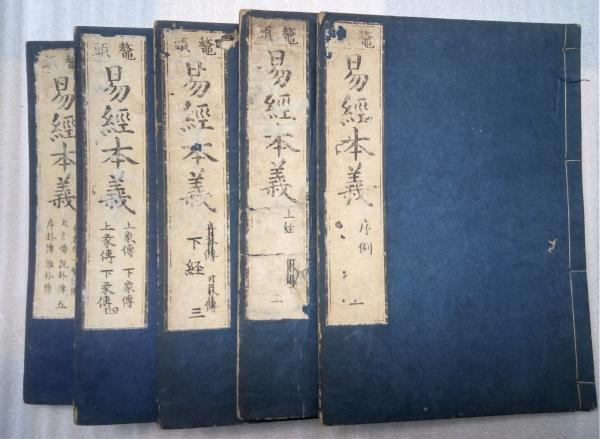 鼇
易經本義
序例
一
鼇頭
易經本義
上経
二
鼇頭
易經本義
下経
三
鼇頭
易經本義
上彖傳 下彖傳
上象傳 下象傳 四
鼇頭
易經本義
文言傳 説卦傳 五
序卦傳 雜卦傳